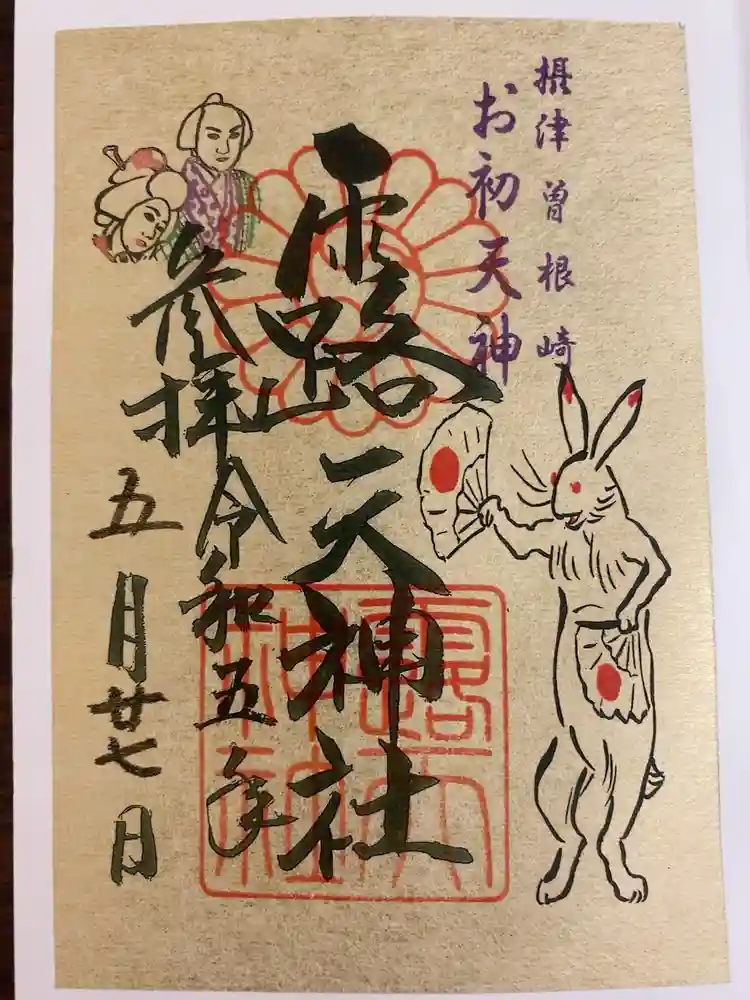 摂津曽根崎
お初天神
露天神社
参拝令和五年
五月廿七日
露天神社